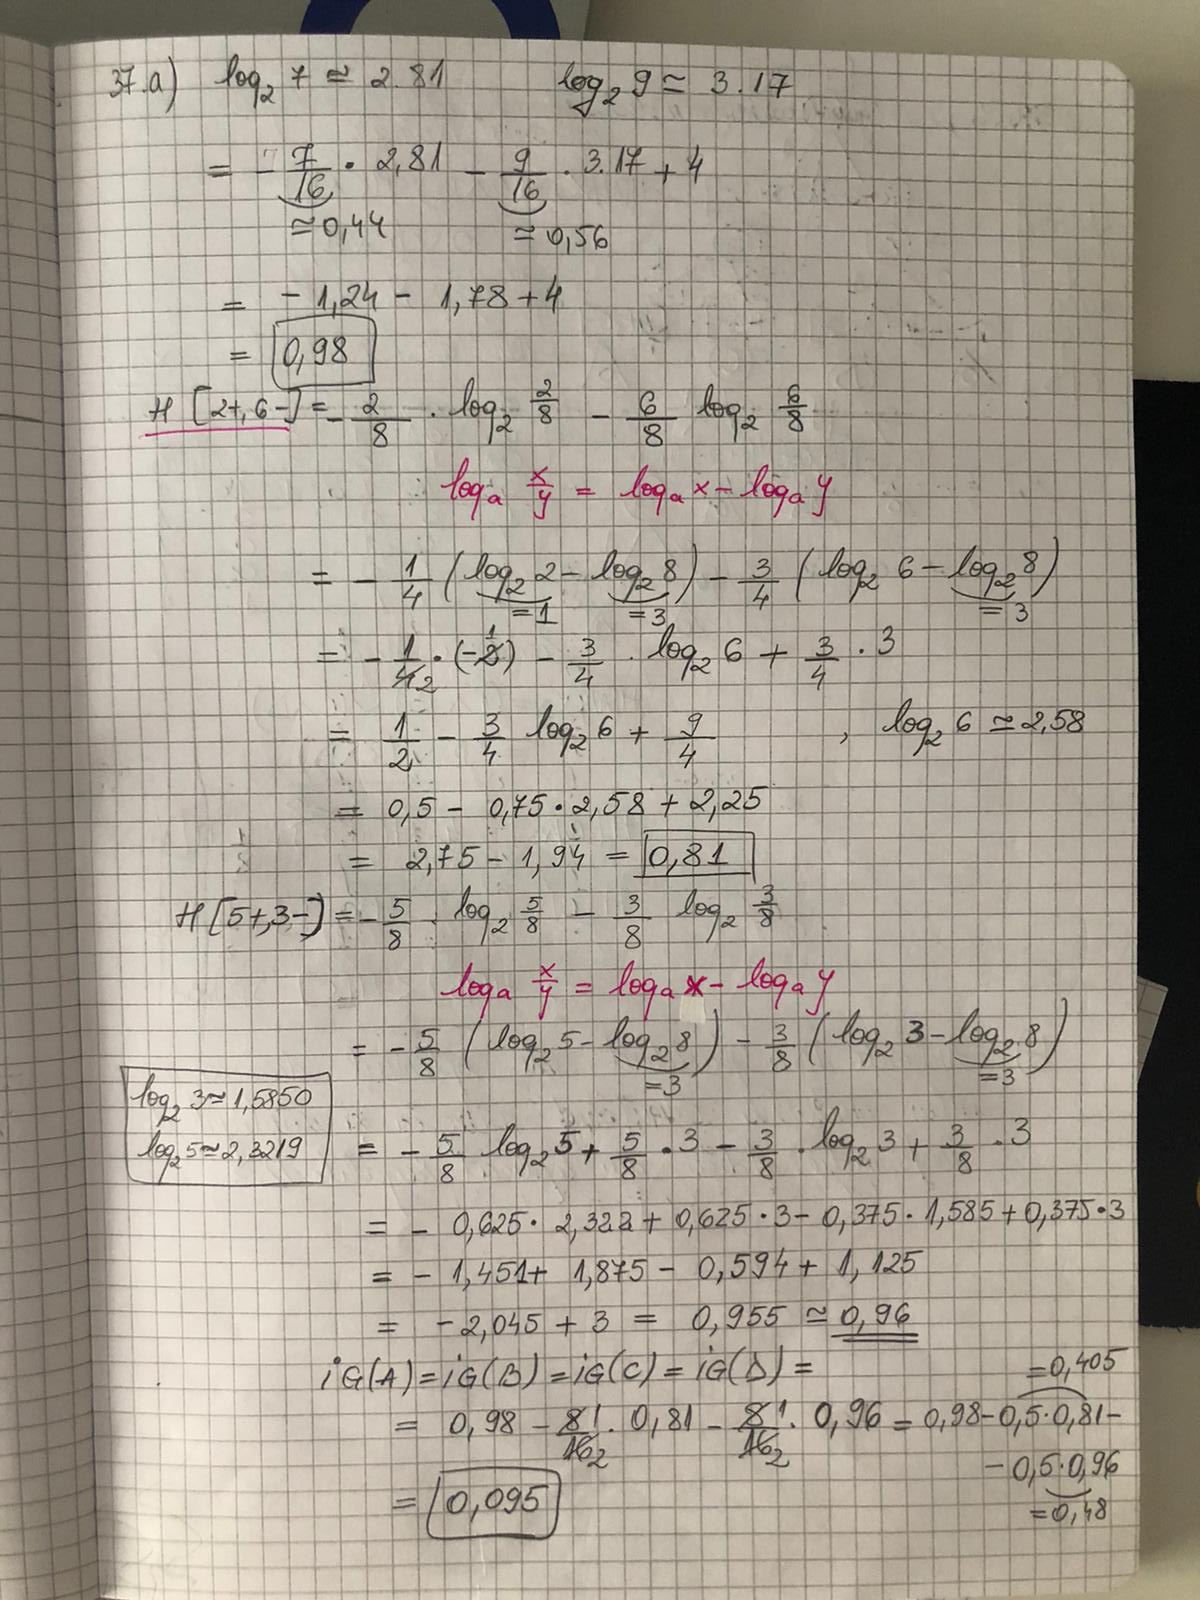 37.a) log₂ 7 ≃ 2.81 log₂ 9 ≃ 3.17
= - 7/16 · 2,81 - 9/16 · 3.17 + 4
≃ 0,44 ≃ 0,56
= - 1,24 - 1,78 + 4
= 0,98
H [2+, 6-] = - 2/8 · log₂ 2/8 - 6/8 log₂ 6/8
logₐ x/y = logₐ x - logₐ y
= - 1/4 (log₂ 2 - log₂ 8) - 3/4 (log₂ 6 - log₂ 8)
=1 =3 =3
= - 1/4₂ · (-2¹) - 3/4 · log₂ 6 + 3/4 · 3
= 1/2 - 3/4 log₂ 6 + 9/4 , log₂ 6 ≃ 2,58
= 0,5 - 0,75 · 2,58 + 2,25
= 2,75 - 1,94 = 0,81
H [5+, 3-] = - 5/8 · log₂ 5/8 - 3/8 log₂ 3/8
logₐ x/y = logₐ x - logₐ y
= - 5/8 (log₂ 5 - log₂ 8) - 3/8 (log₂ 3 - log₂ 8)
=3 =3
log₂ 3 ≃ 1,5850
log₂ 5 ≃ 2,3219
= - 5/8 log₂ 5 + 5/8 · 3 - 3/8 · log₂ 3 + 3/8 · 3
= - 0,625 · 2,322 + 0,625 · 3 - 0,375 · 1,585 + 0,375 · 3
= - 1,451 + 1,875 - 0,594 + 1,125
= - 2,045 + 3 = 0,955 ≃ 0,96
iG(A) = iG(B) = iG(C) = iG(D) = =0,405
= 0,98 - 8¹/16₂ · 0,81 - 8¹/16₂ · 0,96 = 0,98 - 0,5 · 0,81 -
- 0,5 · 0,96
= 0,095 =0,48